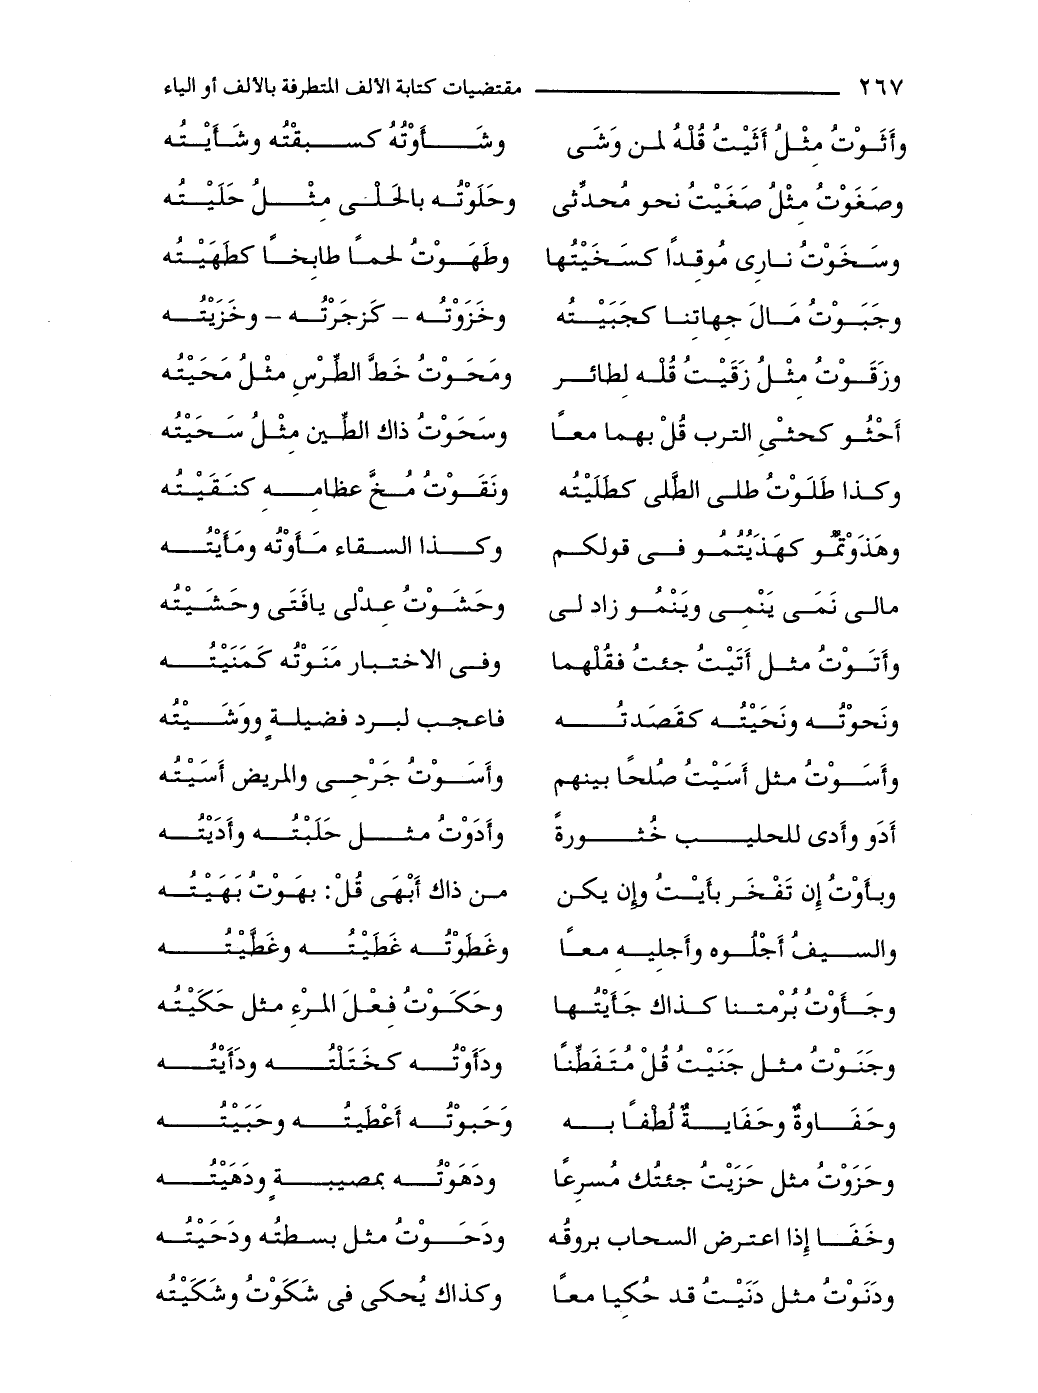 ٢٦٧ مقتضيات كتابة الألف المتطرفة بالألف أو الياء
وأَثَوْتُ مِثْلُ أَثَيْتُ قُلْهُ لمن وَشَى وشَأَوْتُهُ كسبقْتُه وشَأَيْتُه
وصَغَوْتُ مثلُ صَغَيْتُ نحو مُحدِّثى وحَلَوْتُه بالحَلْى مِثْلُ حَلَيْتُه
وسَخَوْتُ نارى مُوقداً كسَخَيْتُها وطَهَوْتُ لحماً طابخاً كطَهَيْتُه
وجَبَوْتُ مَالَ جهاتنا كجَبَيْتُه وخَزَوْتُه – كزجَرْتُه – وخَزَيْتُه
وزَقَوْتُ مِثْلُ زَقَيْتُ قُلْه لطائر ومَحَوْتُ خَطَّ الطِّرْسِ مثْلُ مَحَيْتُه
أَحْثُو كحثْىِ الترب قُلْ بهما معاً وسَحَوْتُ ذاك الطِّين مثْلُ سَحَيْتُه
وكذا طَلَوْتُ طلى الطَّلى كطَلَيْتُه ونَقَوْتُ مُخَّ عظامه كنَقَيْتُه
وهَذَوْتُمُو كهَذَيْتُمُو فى قولكم وكذا السقاء مَأَوْتُه ومَأَيْتُه
مالى نَمَى يَنْمِى ويَنْمُو زاد لى وحَشَوْتُ عدْلى يافَتَى وحَشَيْتُه
وأَتَوْتُ مثل أَتَيْتُ جئت فقُلهما وفى الاختبار مَنَوْتُه كمَنَيْتُه
ونَحَوْتُه ونَحَيْتُه كقَصَدتُه فاعجب لبرد فضيلةٍ ووَشَيْتُه
وأَسَوْتُ مثل أَسَيْتُ صُلحًا بينهم وأَسَوْتُ جَرْحى والمريض أَسَيْتُه
أَدَو وأَدى للحليب خُثُورةً وأَدَوْتُ مثل حَلَبتُه وأَدَيْتُه
وبأَوْتُ إن تَفْخَر بأَيْتُ وإن يكن من ذاك أَبْهَى قُلْ: بهَوْتُ بَهَيْتُه
والسيفُ أَجْلُوه وأَجليه معاً وغَطَوْتُه غَطَيْتُه وغَطَّيْتُه
وجَأَوْتُ بُرْمتنا كذاك جَأَيْتُها وحَكَوْتُ فعْلَ المرْءِ مثل حَكَيْتُه
وجَنَوْتُ مثل جَنَيْتُ قُلْ مُتَفَطِّنًا ودَأَوْتُه كخَتَلْتُه ودَأَيْتُه
وحَفَاوةٌ وحَفَايةٌ لُطْفاً به وَحَبَوْتُه أَعْطَيتُه وحَبَيْتُه
وحَزَوْتُ مثل حَزَيْتُ جئتُك مُسرعًا ودَهَوْتُه بمصيبةٍ ودَهَيْتُه
وخَفَا إذا اعترض السحاب بروقُه ودَحَوْتُ مثل بسطتُه ودَحَيْتُه
ودَنَوْتُ مثل دَنَيْتُ قد حُكيا معاً وكذاك يُحكى فى شَكَوْتُ وشَكَيْتُه